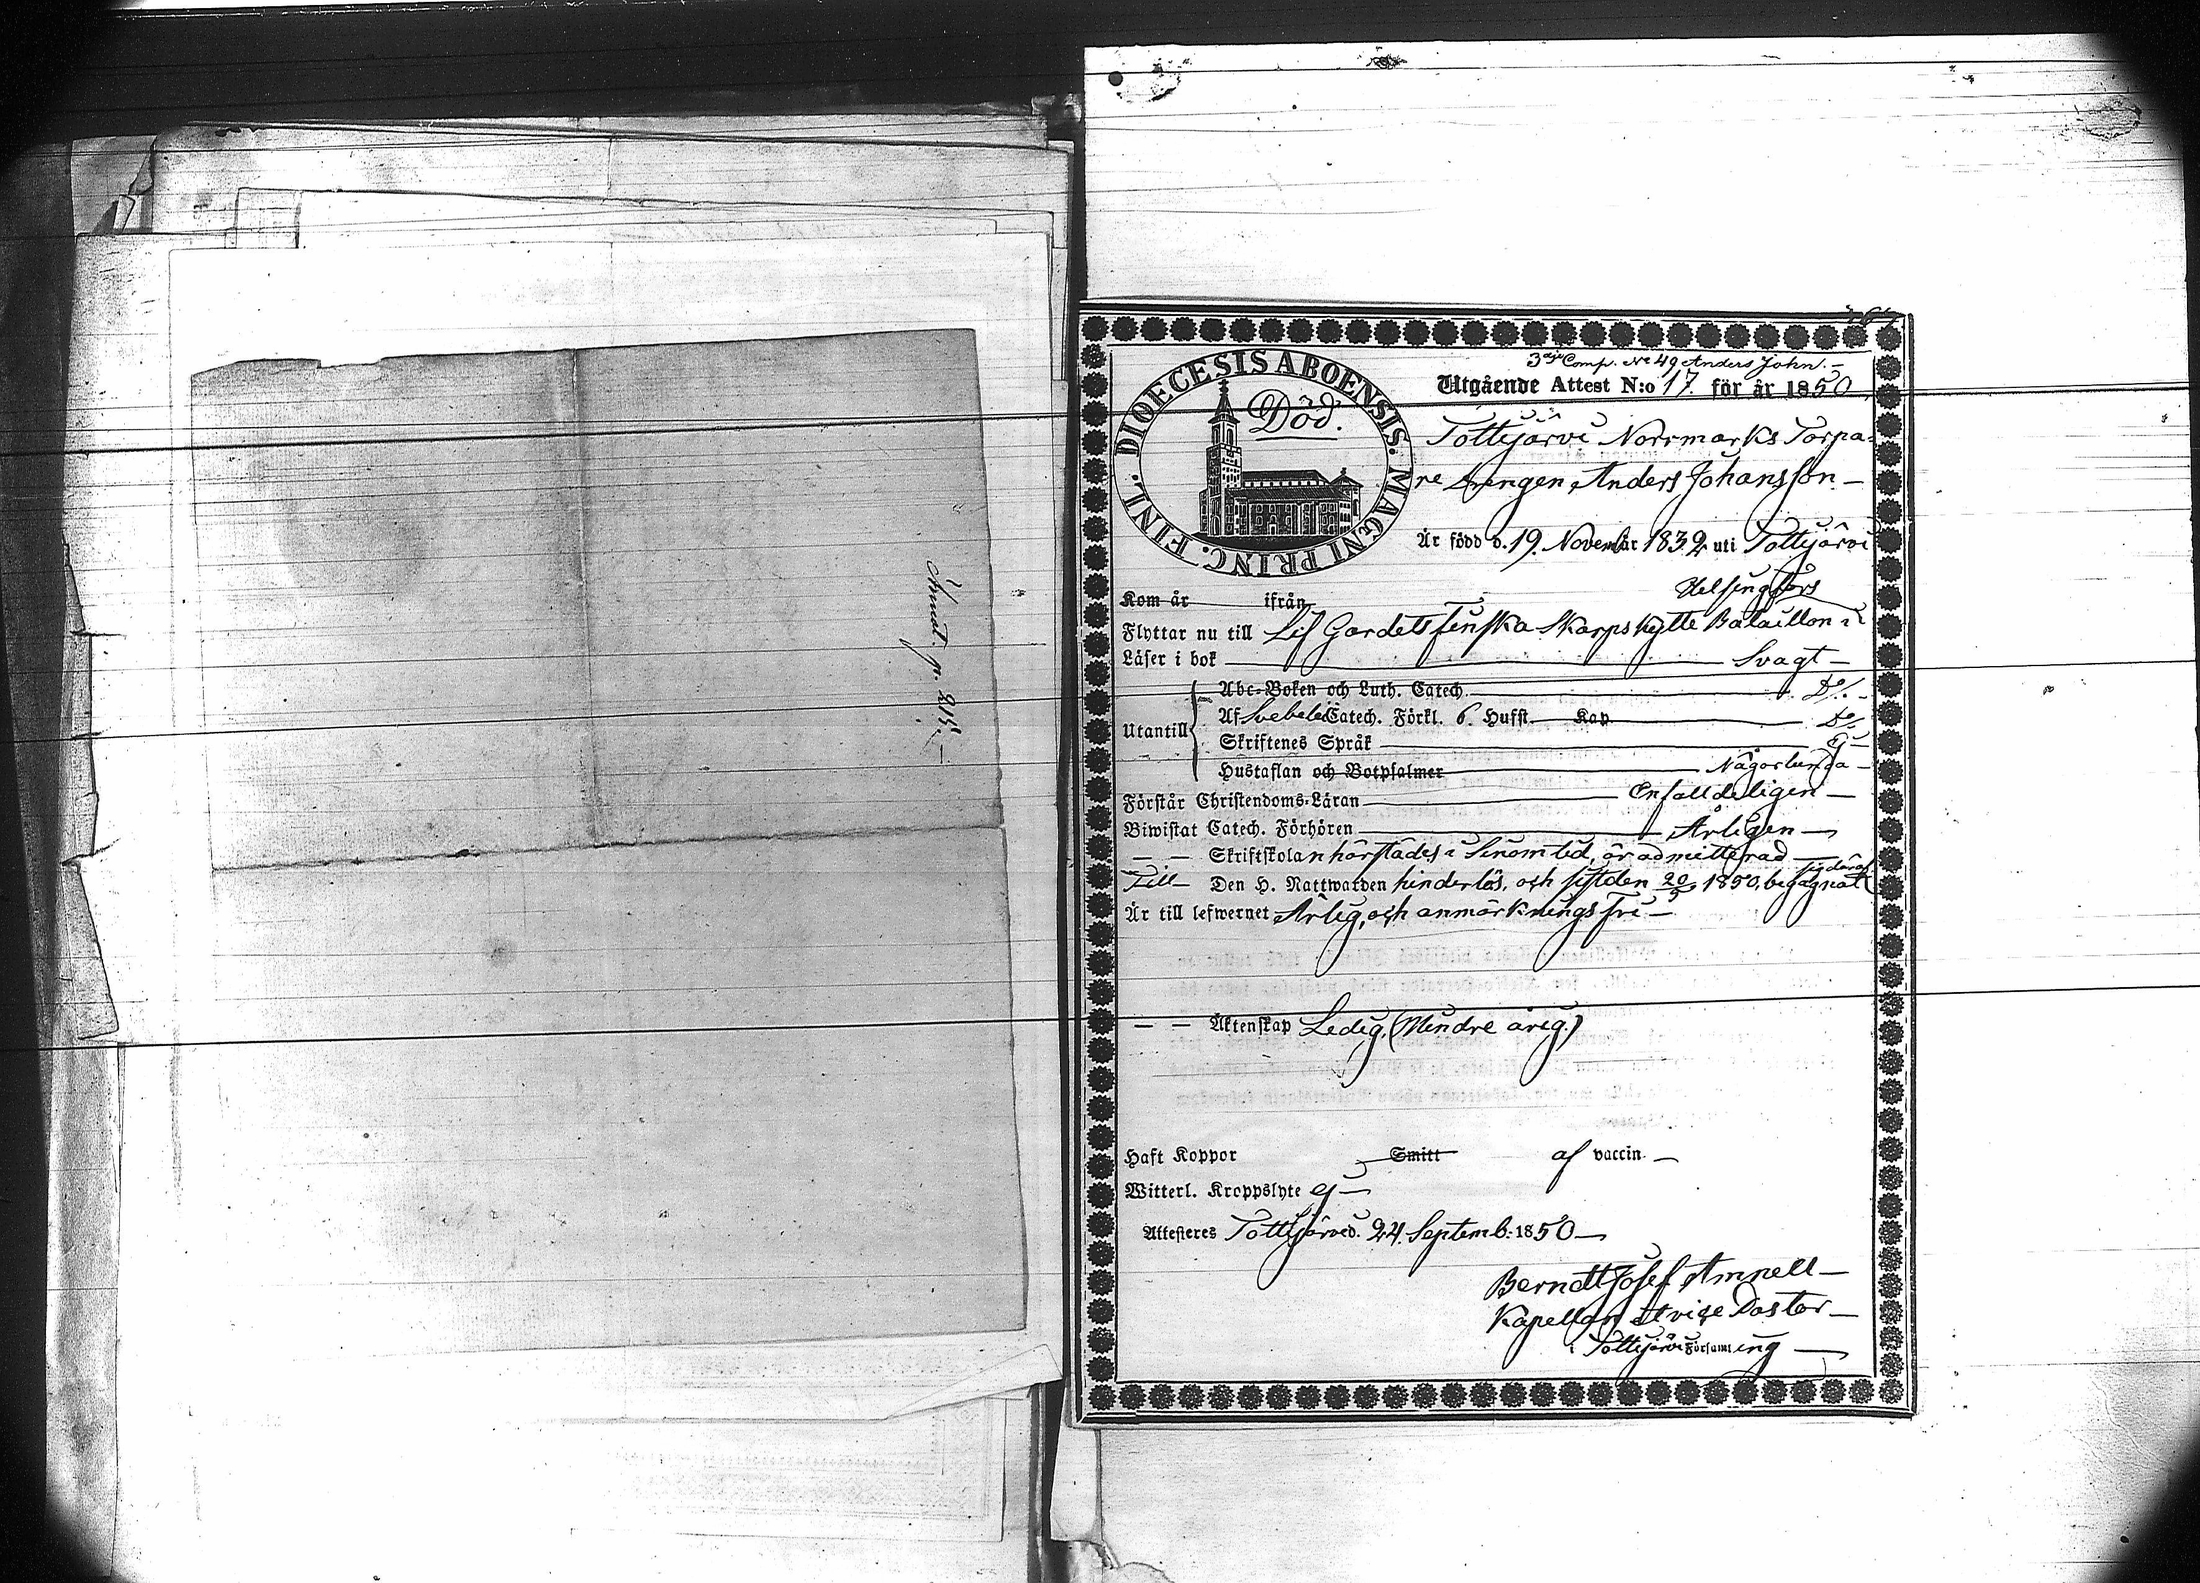 Död.
DIOECESIS ABOENSIS. MAGNI PRINC. FINL.
3dje Comp. No 49 Anders John. –
Utgående Attest N:o 17. för år 1850
Tottijärvi Norrmarks Torpa-
re Drengen, Anders Johansson –
Är född d. 19. November 1832 uti Tottijärvi
Kom år ifrån
Helsingfors
Flyttar nu till Lif Gardets finska Skarpskytte Bataillon i
Läser i bok Svagt –
Utantill
Abc-Boken och Luth. Catech. Do. –
Af Svebelii Catech. Förkl. 6. Hufst. Kap Do
Skriftenes Språk Ej –
Hustaflan och Botpsalmer Någorlunda –
Förstår Christendoms-Läran Enfalldeligen –
Biwistat Catech. Förhören Årligen –
— — Skriftskolan härstädes i sinom tid, är admitterad
Till Den H. Nattwarden hinderlös, och sistden 20/5 1850, begagnat
Är till lefwernet Ärlig, och anmärkningsfri –
— — Äktenskap Ledig, (Minderårig.)
Haft Koppor Smitt af vaccin. –
Witterl. Kroppslyte ej –
Attesteres Tottijärvi d. 24. Septemb. 1850 –
Berndt Josef Amnell –
Kapellan Atvice Pastor –
i Tottijärvi Församling